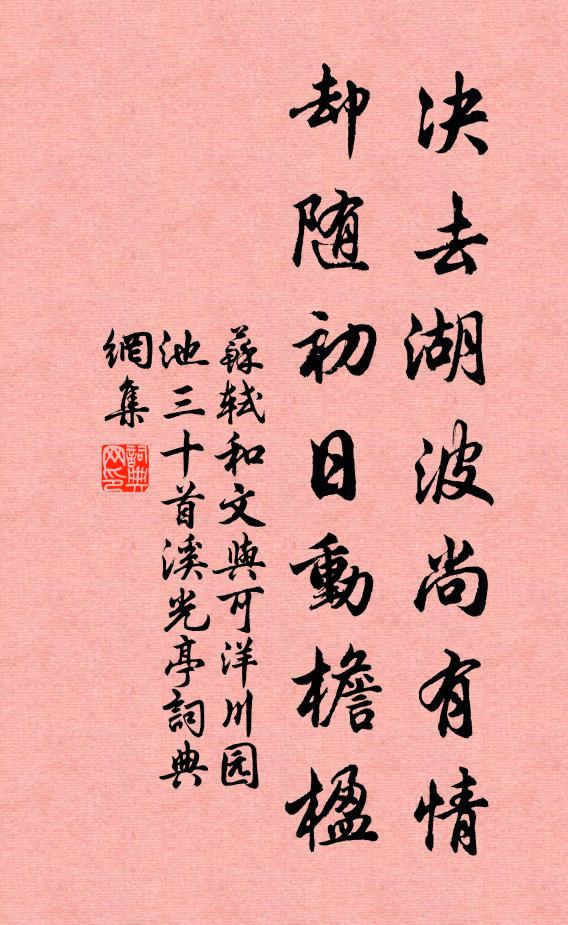 决去湖波尚有情
却随初日動檐楹
蘇轼和文與可洋川园
池三十首溪光亭詞典
網集
詞典
网印